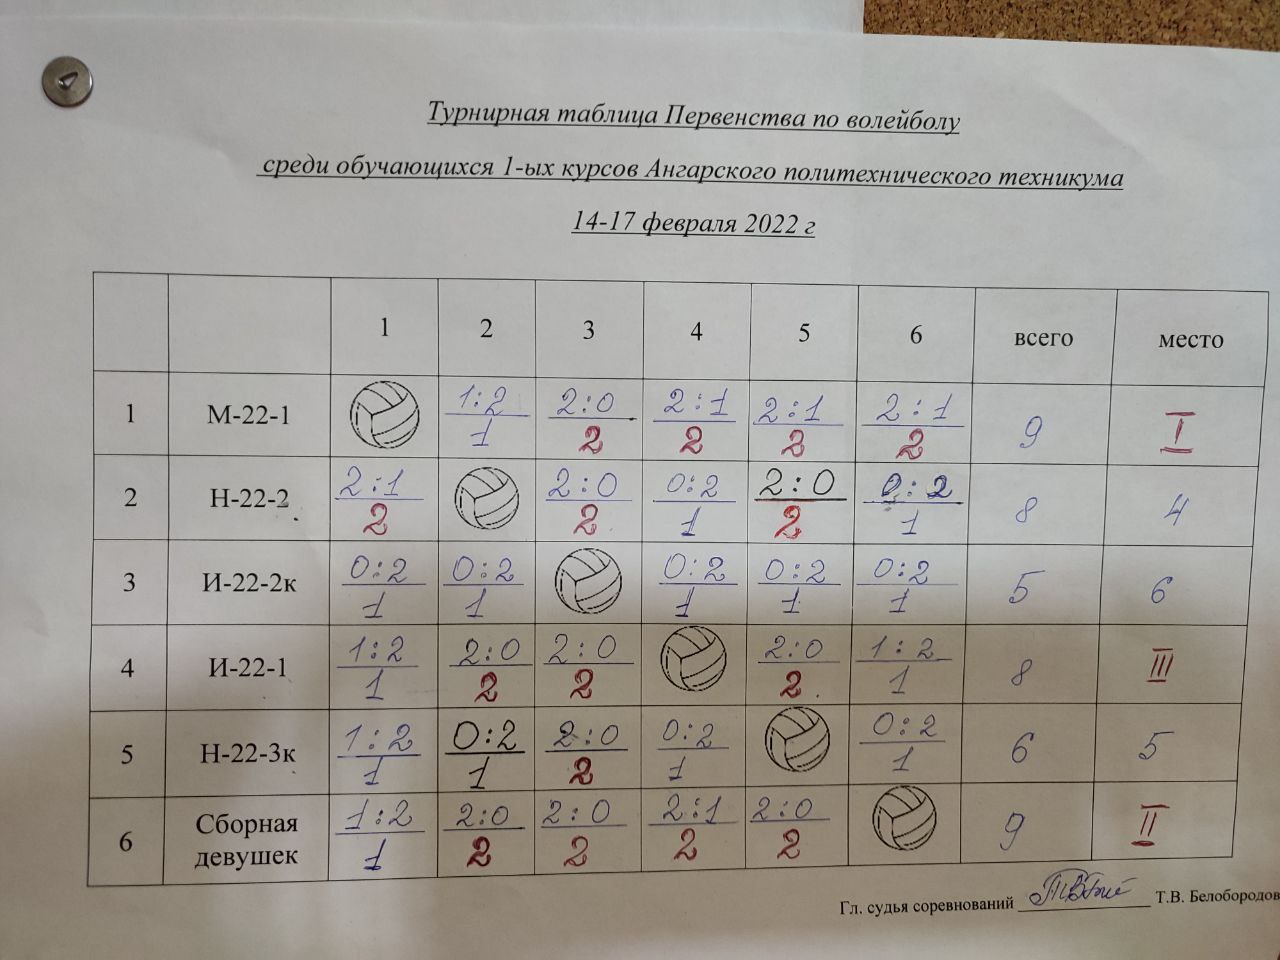 Турнирная таблица Первенства по волейболу
среди обучающихся 1-ых курсов Ангарского политехнического техникума
14-17 февраля 2022 г
1 2 3 4 5 6 всего место
1 М-22-1 1:2 2:0 2:1 2:1 2:1 9 I
1 2 2 2 2
2 Н-22-2 2:1 2:0 0:2 2:0 0:2 8 4
2 2 1 2 1
3 И-22-2к 0:2 0:2 0:2 0:2 0:2 5 6
1 1 1 1 1
4 И-22-1 1:2 2:0 2:0 2:0 1:2 8 III
1 2 2 2 1
5 Н-22-3к 1:2 0:2 2:0 0:2 0:2 6 5
1 1 2 1 1
6 Сборная девушек 1:2 2:0 2:0 2:1 2:0 9 II
1 2 2 2 2
Гл. судья соревнований Т.В. Белобородов